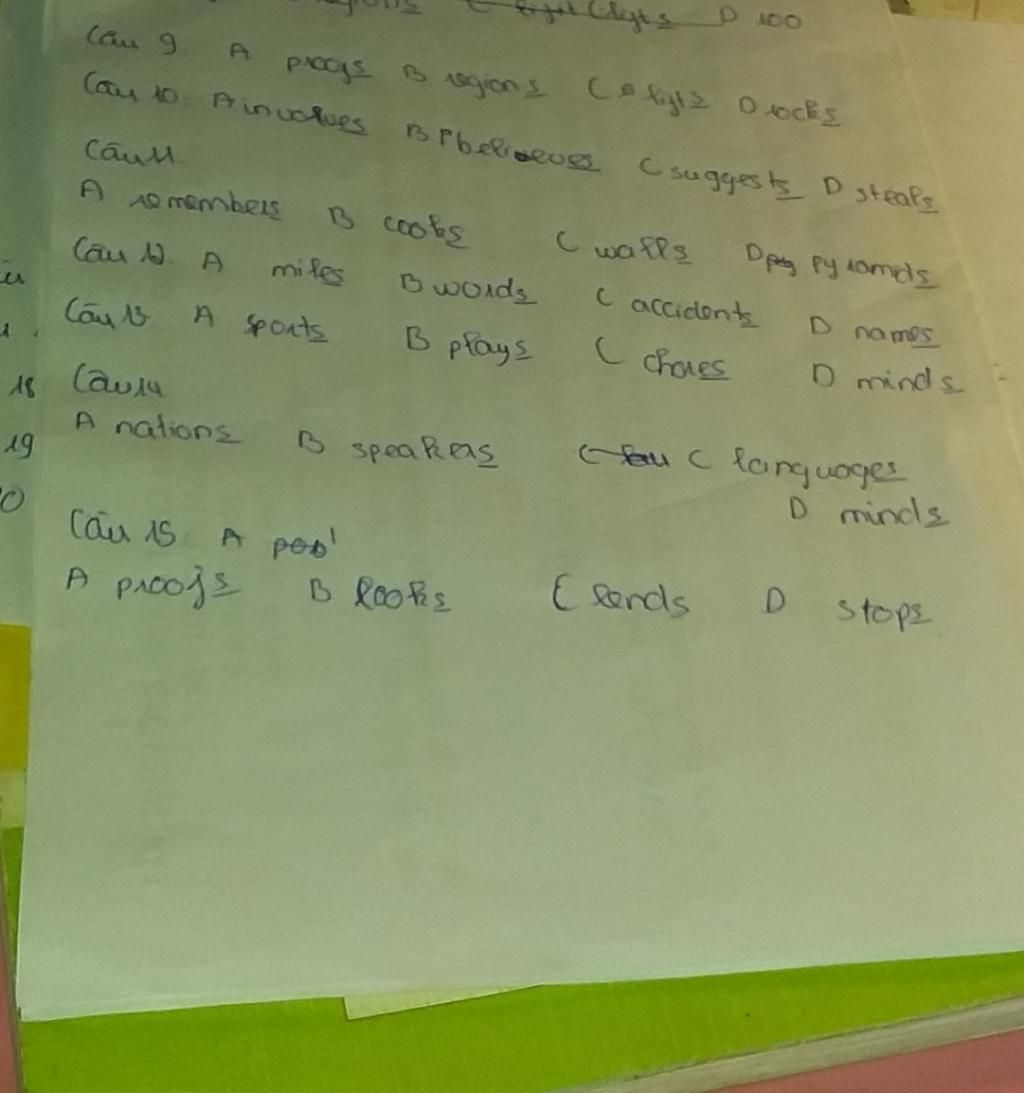 D 100
Câu 9 A proofs B regions C lifts D rocks
Câu 10: A involves B believes C suggests D steals
Câu 11
A remembers B cooks C walls D pyramds
Câu 12 A miles B words C accidents D names
Câu 13 A sports B plays C chores D minds
18 Câu 14
19 A nations B speakers C languages
D minds
Câu 15 A
A proofs B looks C lends D stops